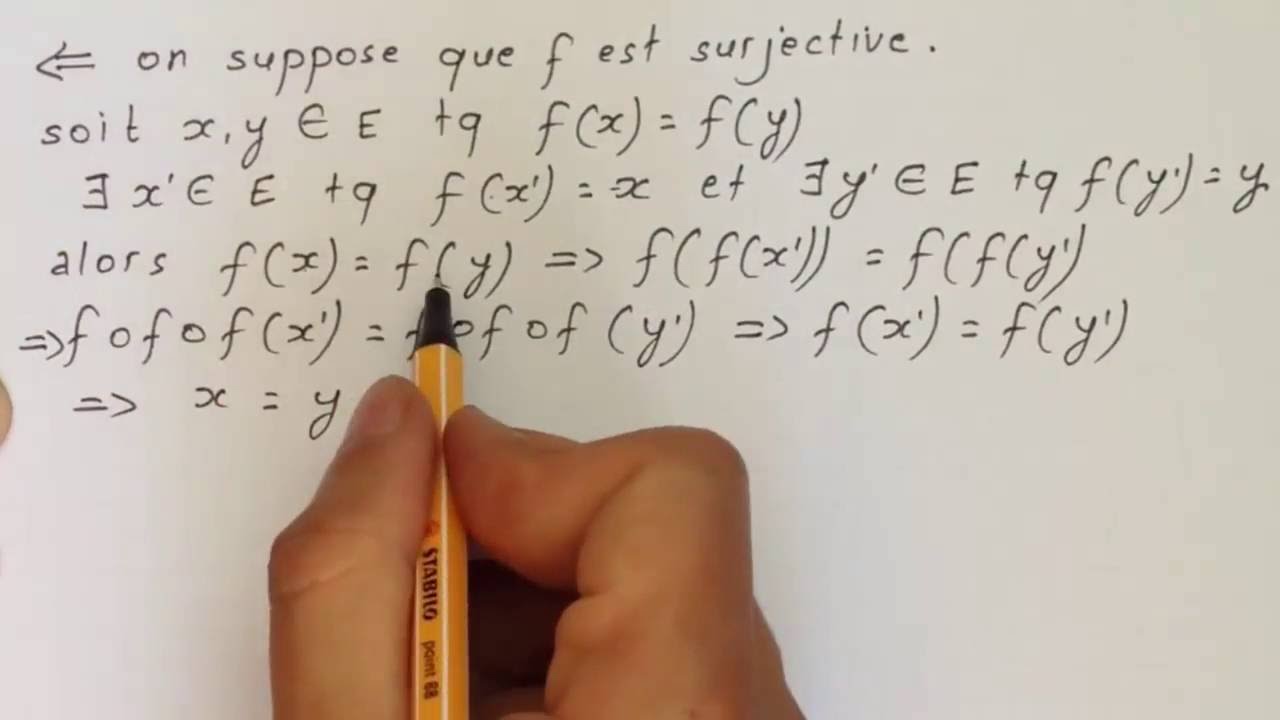 ⇐ on suppose que f est surjective.
soit x, y ∈ E tq f(x) = f(y)
∃ x' ∈ E tq f(x') = x et ∃ y' ∈ E tq f(y') = y
alors f(x) = f(y) => f(f(x')) = f(f(y')
=> f o f o f(x') = f o f o f (y') => f(x') = f(y')
=> x = y
STABILO point 88